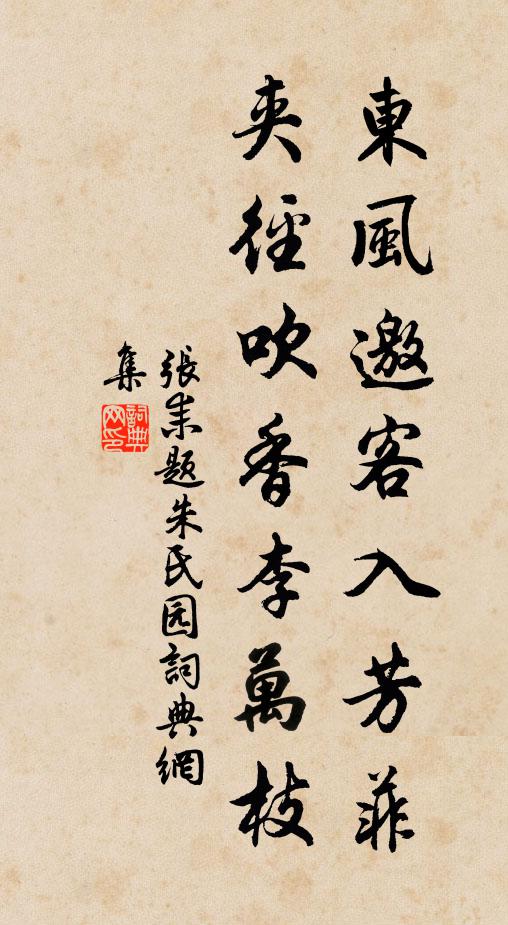 東風邀客入芳菲
夾徑吹香李萬枝
張耒題朱氏园詞典網
集
詞典
网印